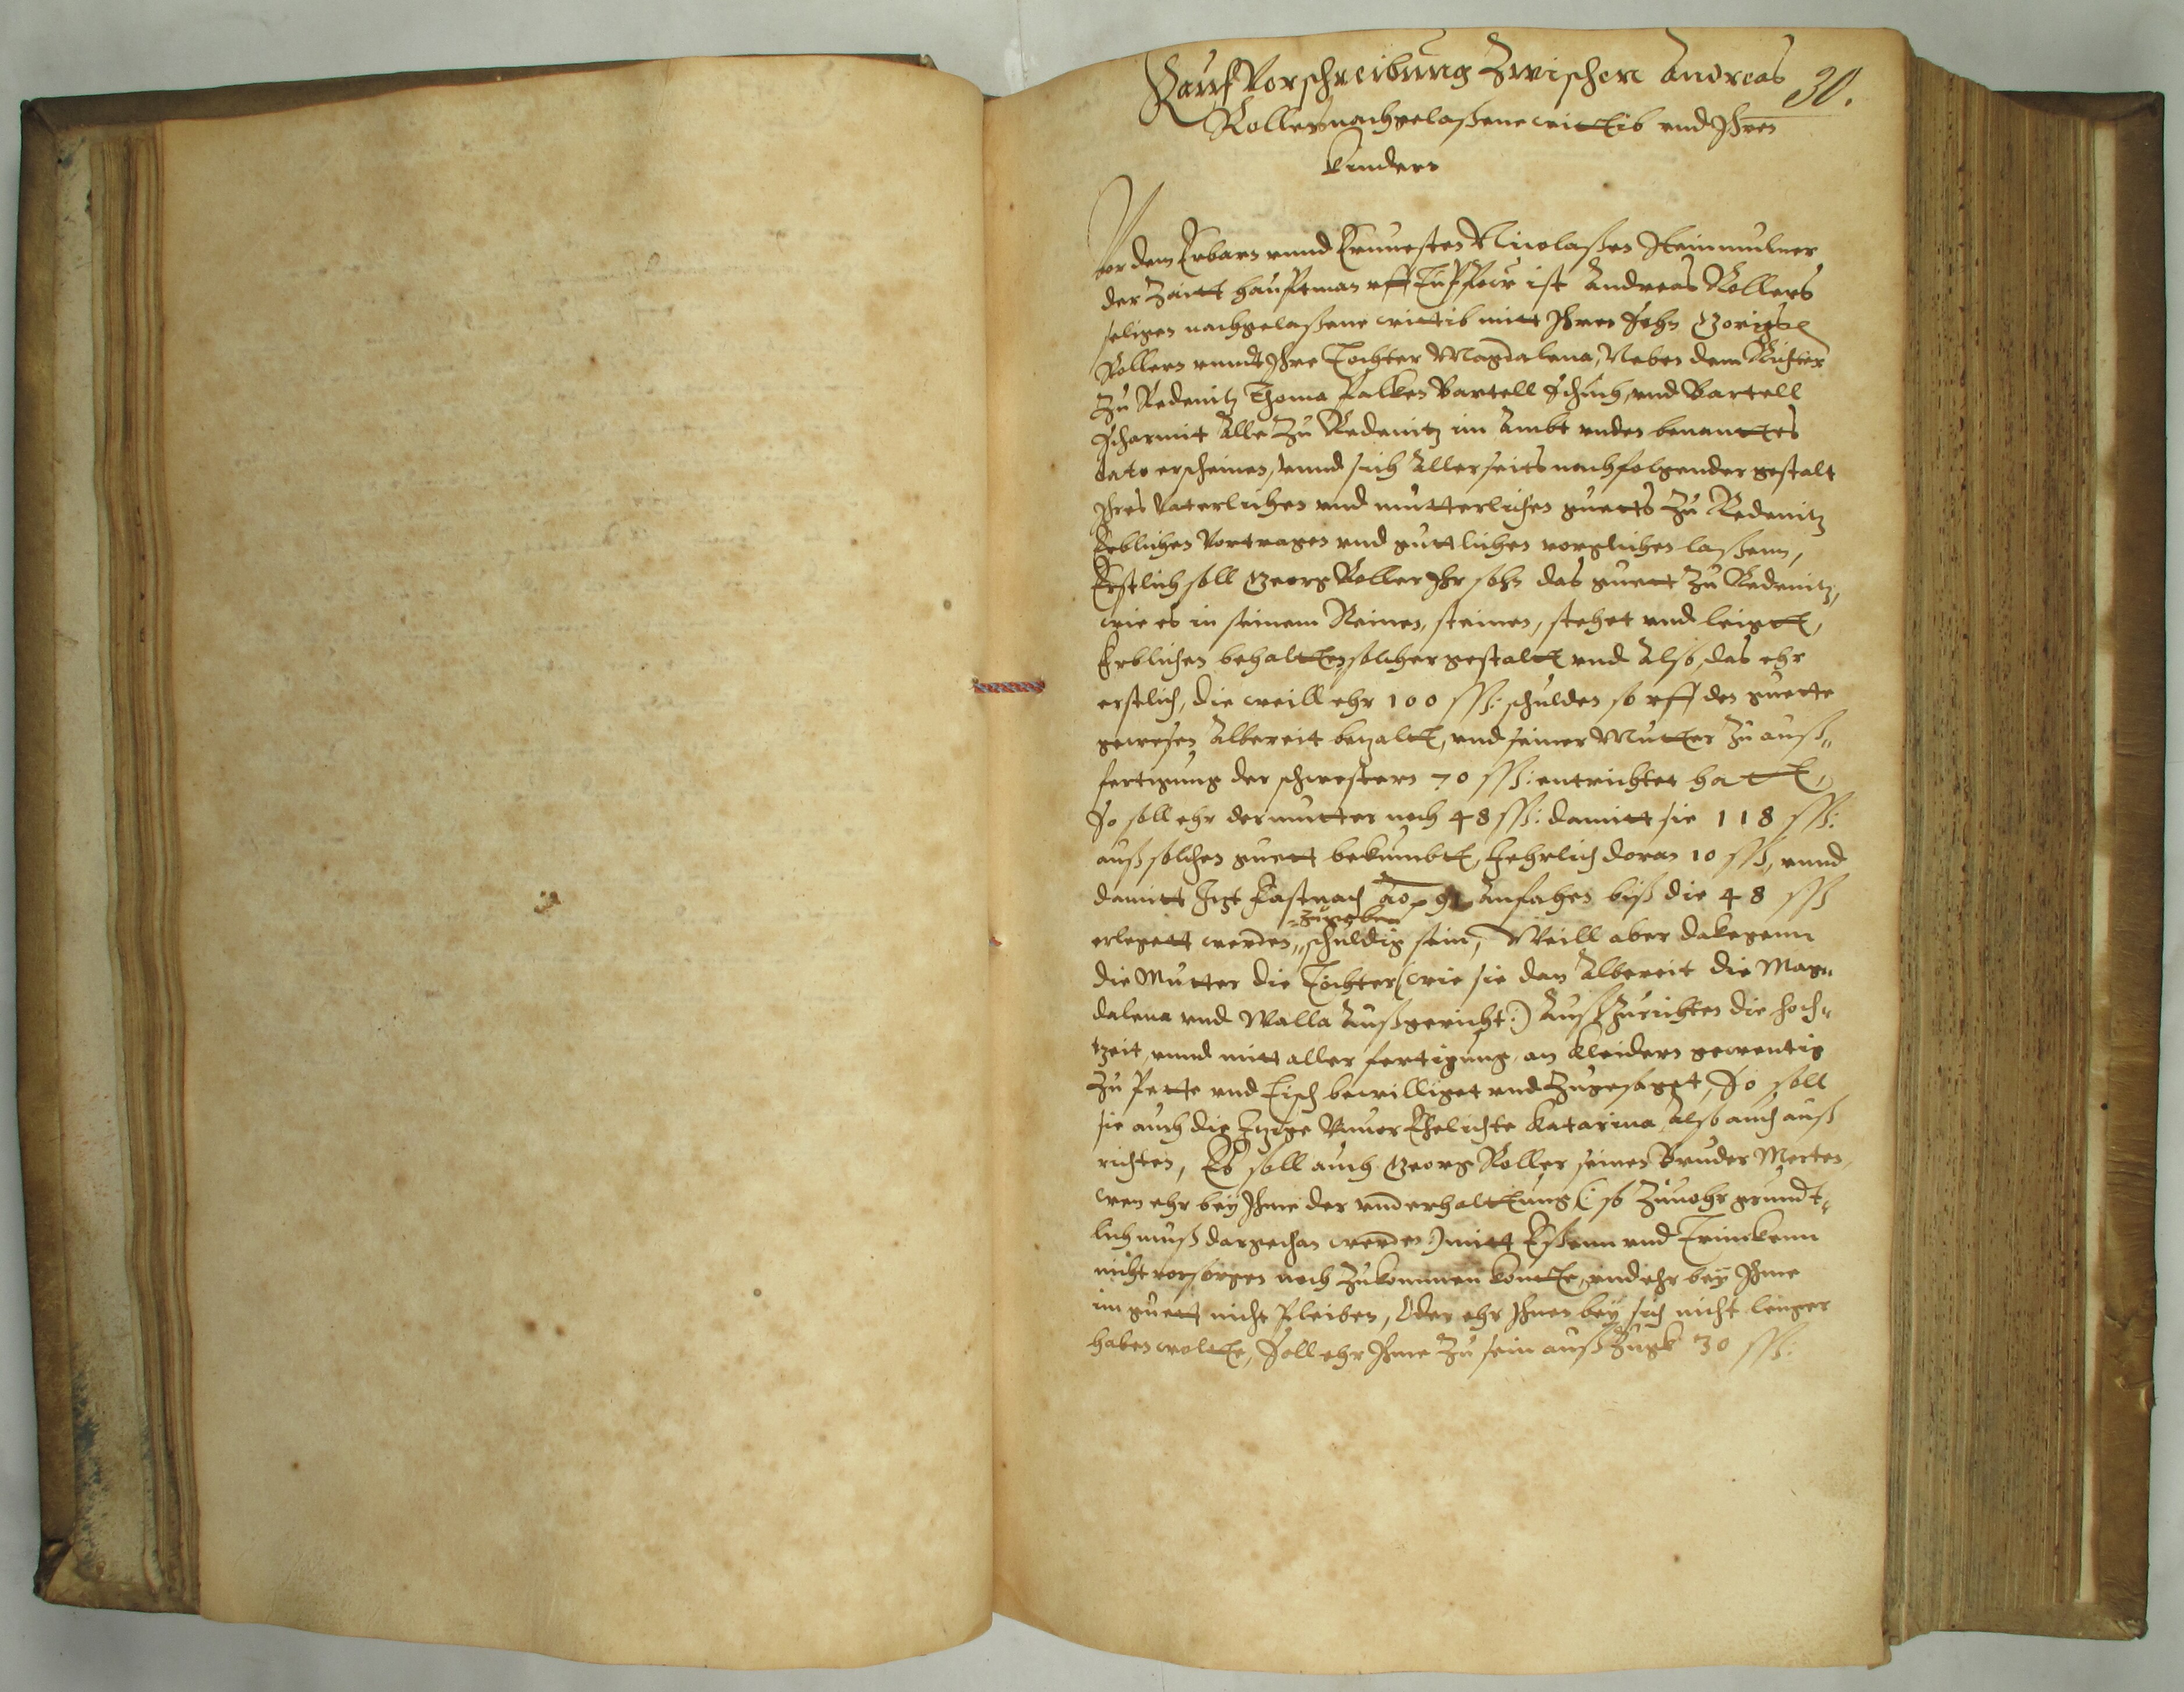 Kauff Vorschreibung Zwischen Andreas
30.
Rollers nachgelaßene wittib vnd Ihren
kindern
Vor dem Erbarn vnnd Ernuesten Nicolaßen
der Zeitt hauptman vff ist Andreas Rollers
seligen nachgelaßene wittib mitt Ihren Sohn
Rollern vnndt Ihre Tochter Magdalena, Neben dem Richter
Zu Redenitz Thoma Falken Bartell Schuch, vnd Bartell
Alle Zu Redenitz im Ambt vnden benanttes
dato erscheinen, vnnd sich Allerseits nachfolgender gestalt
Ihres Vaterlichen vnd mutterlichen guetts Zu Redenitz
Erblichen Vortragen vnd guttlichen vorglichen laßenn,
Erstlich soll Georg Roller Ihr sohn das guett Zu Redenitz,
wie es in seinem Reinen, steinen, stehet vnd leigtt,
Erblichen behaltten solcher gestaltt vnd Also, das ehr
erstlich, die weill ehr 100 ßß: schulden so vff den guette
gewesen Albereit bezaltt, vnd seiner Mutter Zu auß„
fertigung der schwestern 70 ßß: entrichtet hatt,
So soll ehr der mutter noch 48 ßß: damitt sie 118 ßß:
auß solchen guett bekumbtt, Jehrlich doran 10 ßß, vnnd
damitt Izt Fastnach Ao 91 Anfahen biß die 48 ßß
Zugeben
erlegett werden „ schuldig sein, Weill aber dakegenn
die Mutter die Tochter (: wie sie dan Albereit die Mag„
dalena vnd Walla Außgericht:) Auß Zurichten die hoch„
tzeit, vnnd mitt aller fertigung, an kleidern gewentig
Zu Pette vnd Tisch bewilliget vnd Zugesaget, So soll
sie auch die Itzige Vnuor Ehelichte Katarina, Also auch auß
richten, Es soll auch Georg Roller seinen Bruder Merten,
wen ehr bey Ihme der vnderhalttung (: so Zuuohr grundt„
lich muß dargethan werden:) mitt Eßenn vnd Trinckenn
nicht vorsorgen noch Zukommen kontte, vnd ehr bey Ihme
im guett nicht Pleiben, Oder ehr Ihnen bey sich nicht lenger
haben woltte, Soll ehr Ihme Zu sein auß Zugk 30 ßß: